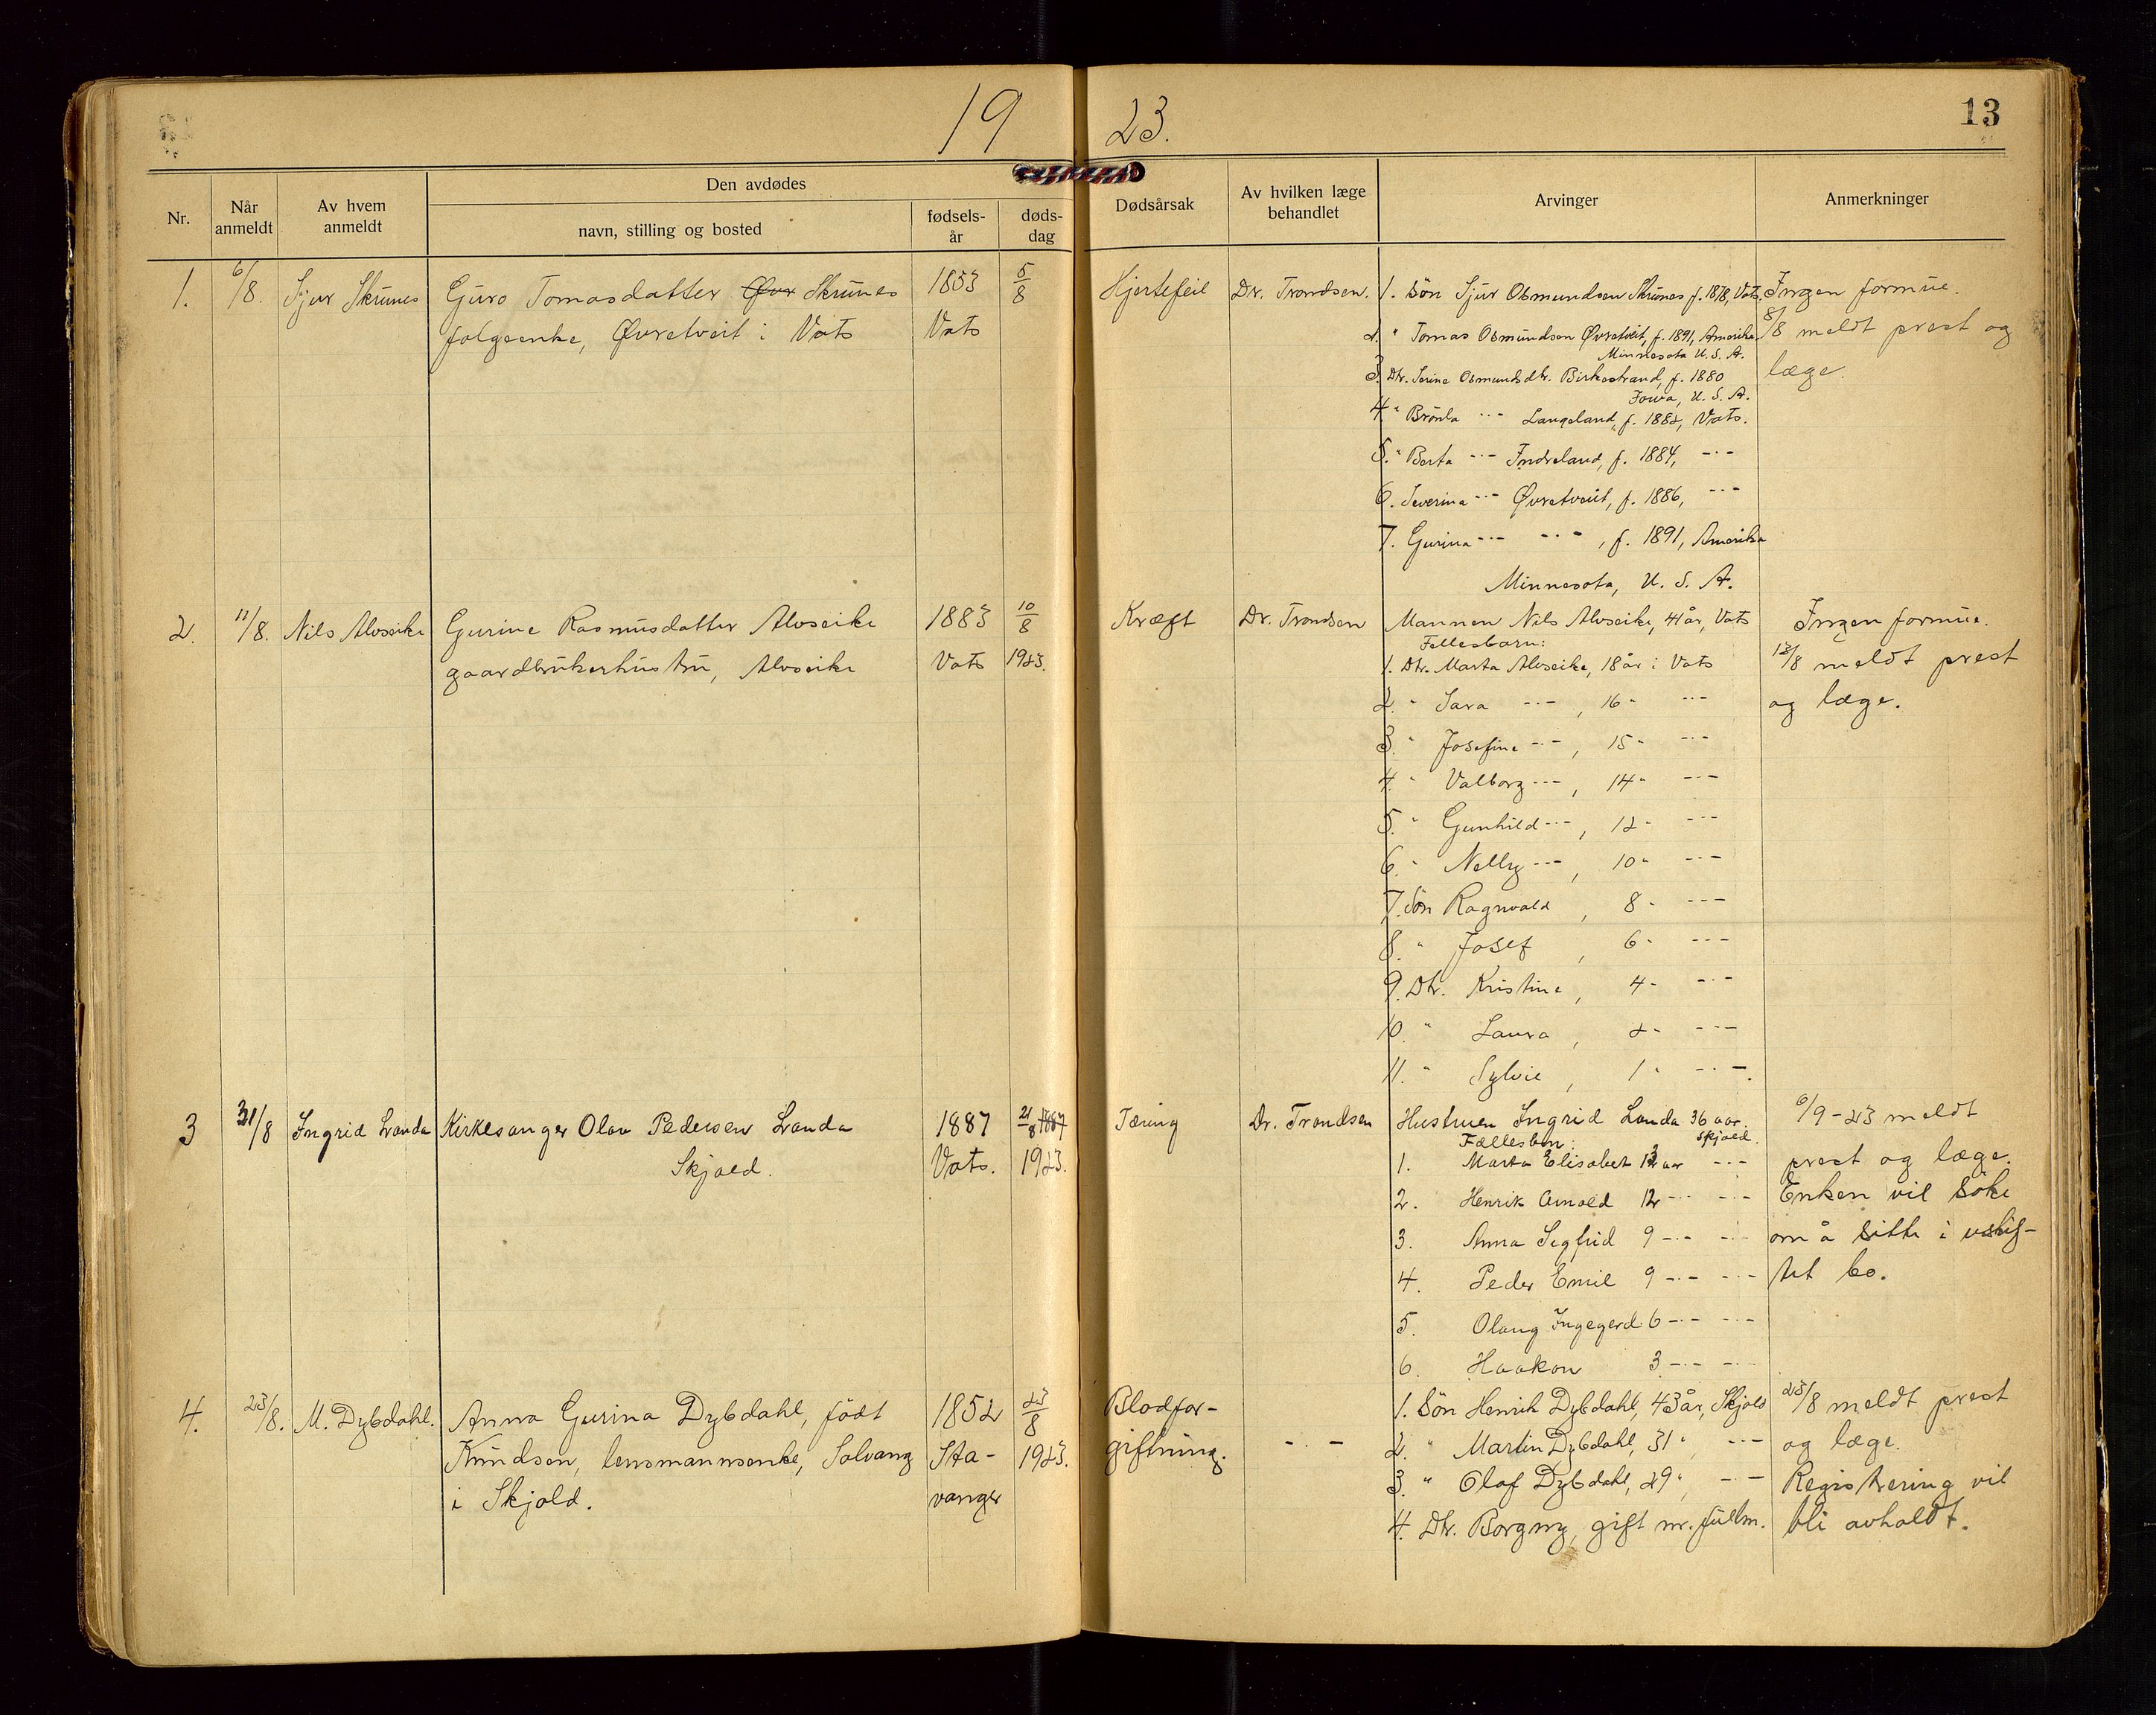 19 23.
13
Nr.
Når anmeldt
Av hvem anmeldt
Den avdødes
navn, stilling og bosted
fødsels-år
døds-dag
Dødsårsak
Av hvilken læge behandlet
Arvinger
Anmerkninger
1. 6/8. Sjur Skrunes Guro Tomasdatter Øvr Skrunes 1853 5/8
folgeenke, Øvretveit i Vats Vats
Hjertefeil Dr. Trondsen.
1. Sön Sjur Osmundsen Skrunes f. 1878, Vats.
2. " Tomas Osmundsen Øvretveit, f. 1891, Amerika
Minnesota U. S. A.
3. Dtr. Serine Osmundsdtr. Birkestrand, f. 1880
Iowa, U. S. A.
4. " Brönla -"- Langeland, f. 1882, Vats.
5. " Berta -"- Indreland, f. 1884, -"-
6. Severina -"- Øvretveit, f. 1886, -"-
7. Gurina -"- -"-, f. 1891, Amerika
Minnesota, U. S. A.
Ingen formue.
8/8 meldt prest og
læge.
2. 11/8. Nils Alvseike Gurine Rasmusdatter Alvseike 1883 10/8
gaardbrukerhustru, Alvseike Vats 1923.
Kræft Dr. Trondsen
Mannen Nils Alvseike, 41 år, Vats
Fellesbarn:
1. Dtr. Marta Alvseike, 18 år i Vats
2. " Sara -"-, 16 " -"-
3. " Josefine -"-, 15 " -"-
4. " Valborg -"-, 14 " -"-
5. " Gunhild -"-, 12 " -"-
6. " Nelly -"-, 10 " -"-
7. Sön Ragnvald, 8 " -"-
8. " Josef, 6 " -"-
9. Dtr. Kristine, 4 " -"-
10. " Laura, 2 " -"-
11. " Sylvie, 1 " -"-.
Ingen formue.
13/8 meldt prest
og læge.
3 31/8 Ingrid Landa Kirkesanger Olav Pedersen Landa 1887 21/8 1887
Skjold. Vats. 1923.
Tæring Dr. Trondsen
Hustruen Ingrid Landa 36 aar.
Skjold.
Fællesbrn:
1. Marta Elisabet 13 aar -"-
2. Henrik Arnold 12 -"- -"-
3. Anna Segfrid 9 -"- -"-
4. Peder Emil 9 -"- -"-
5. Olaug Ingegerd 6 -"- -"-
6. Haakon 3 -"- -"-
6/9-23 meldt
prest og læge.
Enken vil söke
om å sitte i uskif-
tet bo.
4. 23/8. M. Dybdahl. Anna Gurina Dybdahl, födt 1852 23/8
Knudsen, lensmannsenke, Solvang Sta- 1923.
i Skjold. vanger
Blodfor-
giftning. -"-
1. Sön Henrik Dybdahl, 43 år, Skjold
2. " Martin Dybdahl, 31 ", -"-
3. " Olaf Dybdahl, 29 ", -"-
4. Dtr. Borgny, gift m. fullm.
25/8 meldt prest
og læge.
Registrering vil
bli avholdt.